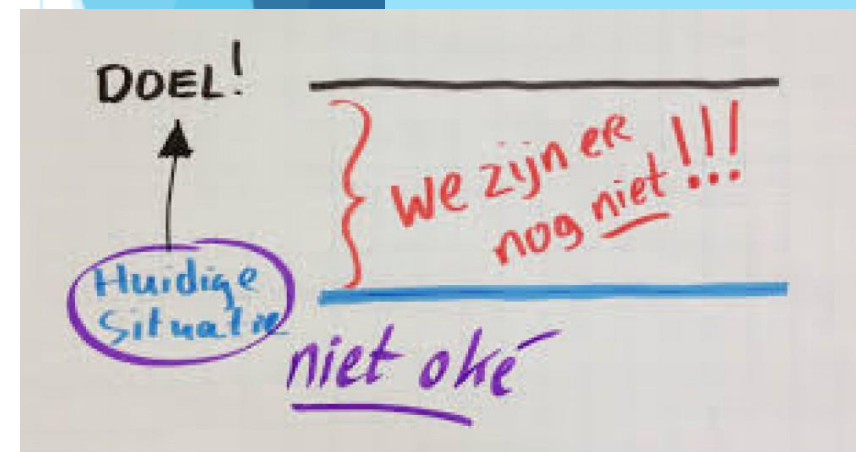 DOEL!
We zijn er
nog niet!!!
Huidige
Situatie
niet oké